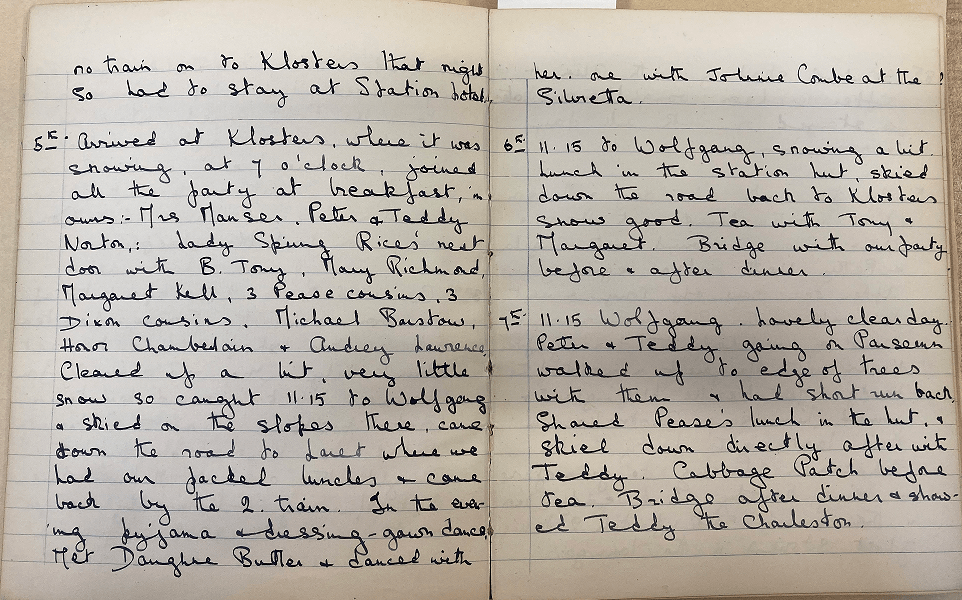 no train on to Klosters that night
so had to stay at Station hotel.
5th. Arrived at Klosters, where it was
snowing, at 7 o'clock, joined
all the party at breakfast, in
ours:- Mrs Manser, Peter & Teddy
Norton,: Lady Spring Rices' next
door with B. Tony, Mary Richmond,
Margaret Kell, 3 Pease cousins, 3
Dixon cousins, Michael Barstow,
Honor Chamberlain & Audrey Lawrence.
Cleared up a bit, very little
snow so caught 11.15 to Wolfgang
& skied on the slopes there, came
down the road to Laret where we
had our packed lunches & came
back by the 2. train. In the even-
ing pyjama & dressing-gown dance.
Met Butler & danced with
her. one with Johnie Combe at the
Silvretta.
6th 11.15 to Wolfgang, snowing a bit.
Lunch in the station hut, skied
down the road back to Klosters
snow good. Tea with Tony &
Margaret. Bridge with our party
before & after dinner.
7th. 11.15 Wolfgang. Lovely clear day.
Peter & Teddy going on Parsenn
walked up to edge of trees
with them & had short run back.
Shared Pease's lunch in the hut, &
skied down directly after with
Teddy. Cabbage Patch before
tea. Bridge after dinner & show-
ed Teddy the Charleston.